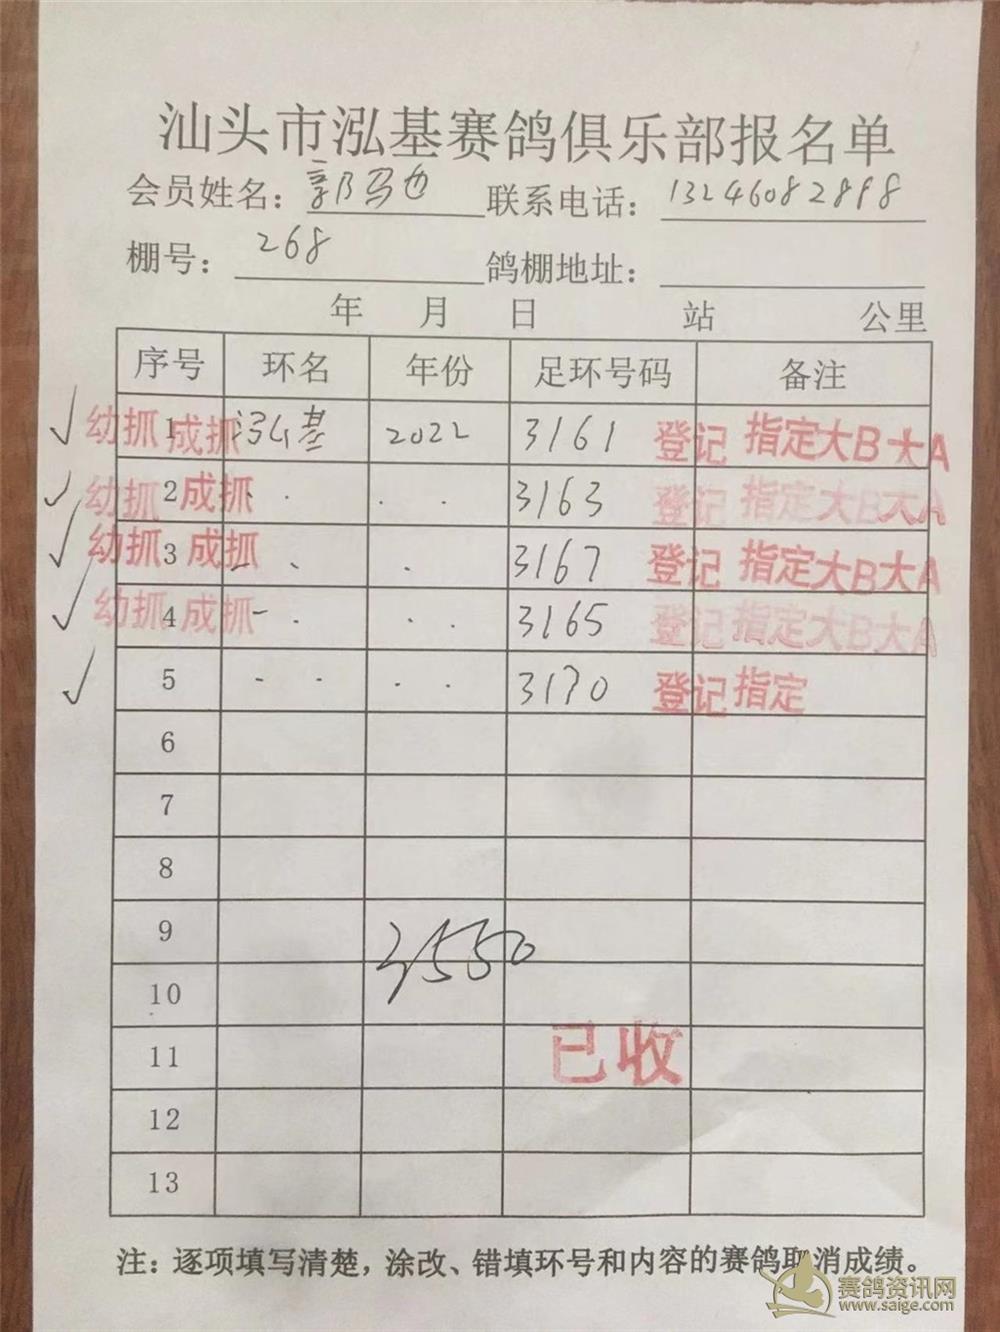 汕头市泓基赛鸽俱乐部报名单
会员姓名： 郭 联系电话： 13246082898
棚号： 268 鸽棚地址：
年 月 日 站 公里
序号 环名 年份 足环号码 备注
✓ 幼抓 1 成抓 泓基 2022 3161 登记 指定大B大A
✓ 幼抓 2 成抓 · · · 3163 登记 指定大B大A
✓ 幼抓 3 成抓 · · 3167 登记 指定大B大A
✓ 幼抓 4 成抓 · · · 3165 登记 指定大B大A
✓ 5 · · · · 3170 登记 指定
6
7
8
9 3550
10
11 已收
12
13
注：逐项填写清楚，涂改、错填环号和内容的赛鸽取消成绩。
赛鸽资讯网
www.saige.com